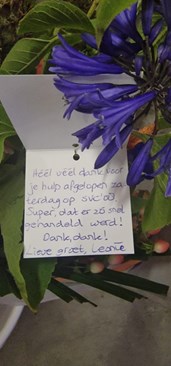 Héél véél dank voor
je hulp afgelopen za
terdag op SVC'00.
Super, dat er zo snel
gehandeld werd!
Dank, dank!
Lieve groet, Leonie